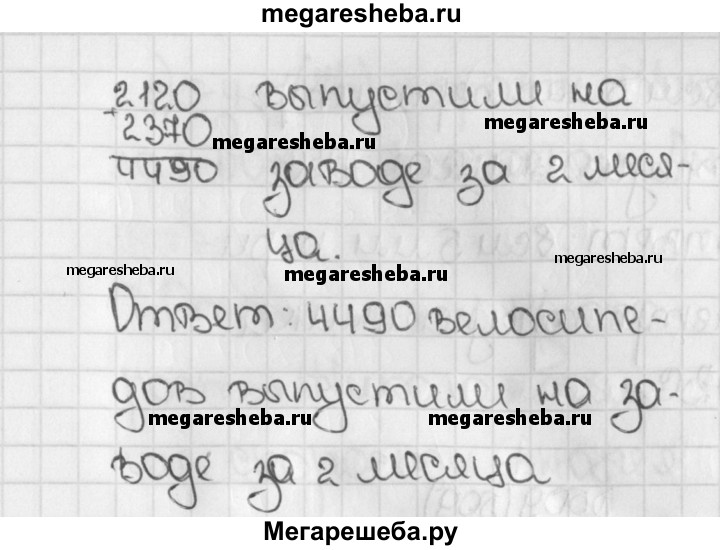 megaresheba.ru
2120 выпустили на
megaresheba.ru
+
2370
megaresheba.ru
4490 заводе за 2 меся-
ца.
megaresheba.ru
megaresheba.ru
megaresheba.ru
Ответ: 4490 велосипе-
дов выпустили на за-
megaresheba.ru
megaresheba.ru
воде за 2 месяца
Мегарешеба.ру